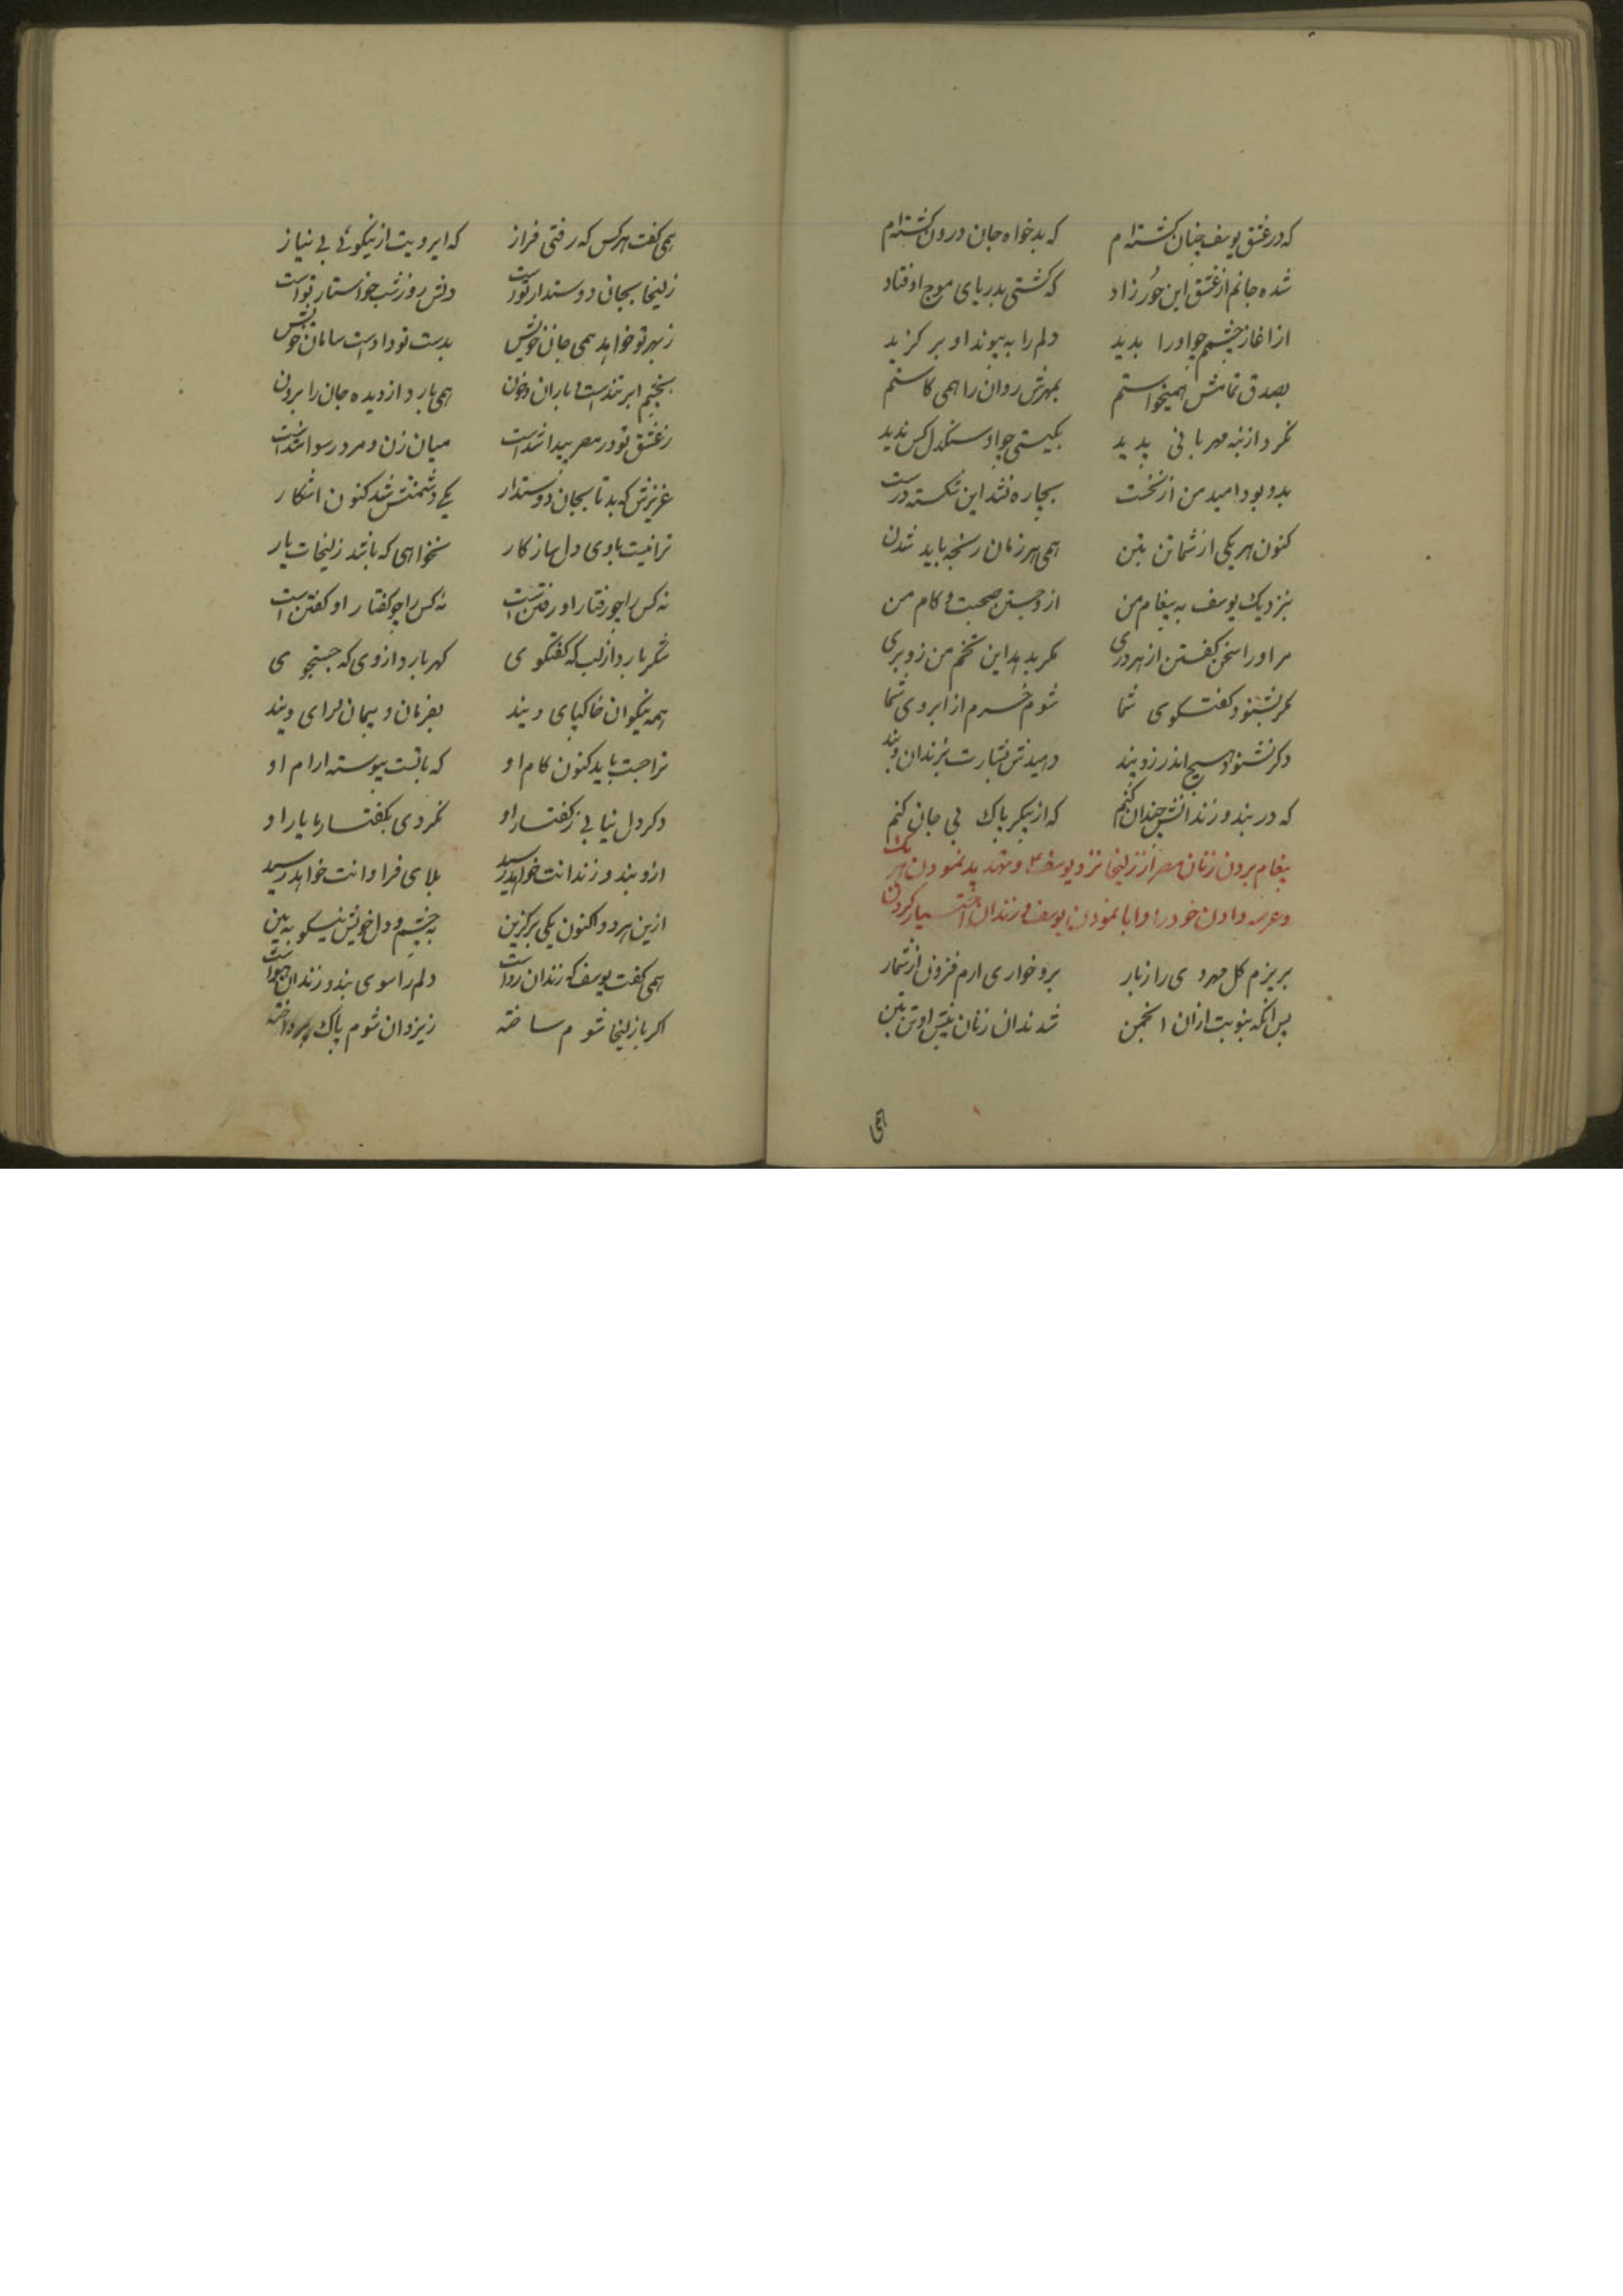 که در عشق یوسف چنان گشته‌ام که بدخواه جان درون گشته‌ام
شده جانم از عشق این حورزاد که کشتی بدریای موج اوفتاد
از اغاز چشمم چو او را بدید دلم را به پیوند او بر گزید
بصدق تمامش همیخواستم بمهرش روان را همی کاستم
نکرد از بنه مهربانی پدید بگیتی چو او سنگدل کس ندید
بدو بود امید من از نخست بچاره نشد این شکسته درست
کنون هر یکی از شما تن بتن همی هر زمان رنجه باید شدن
بنزدیک یوسف به پیغام من ازو جستن صحبت و کام من
مر او را سخن گفتن از هر دری مگر بدهد این تخم من زو بری
گر بشنود گفتگوی شما شوم خرم از ابروی شما
وگر نشنود هیچ اندرز و پند دهیدش بشارت بزندان و بند
که در بند و زندانش چندان کنم که از پیکر پاک بی جان کنم
پیغام بردن زنان مصر از زلیخا نزد یوسف ع و تهدید نمودن هر یک
و عرضه دادن خود را و ابا نمودن یوسف و زندان اختیار کردن
بریزم گل مهر وی را ز بار برو خواری ارم فزون از شمار
پس انگه بنوبت ازان انجمن شدندان زنان پیش او تن بتن
همی
همی گفت هر کس که رفتی فراز که ای رویت از نیکوئی بی نیاز
زلیخا بجان دوستدار تو است دلش روز و شب خواستار تو است
ز بهر تو خواهد همی جان خویش بدست تو دادست سامان خویش
بچشم ابر تندست و باران و خون همی بارد از دیده جان را برون
ز عشق تو در مصر پیدا شدست میان زن و مرد رسوا شدست
عزیزش که بد تا بجان دوستدار یکی دشمنش شد کنون اشکار
ترا نیست با وی دل بهاز کار نخواهی که باشد زلیخات یار
نه کس را چو رفتار او رفتن است نه کس را چو گفتار او گفتن است
شکر بارد از لب که گفتگوی گهر بارد از وی که جستجوی
همه نیکوان خاکپای ویند بفرمان و پیمان و رای ویند
ترا جست باید کنون کام او که باشت پیوسته ارام او
وگر دل نیابی ز گفتار او نگردی بگفتار ما یار او
ازو بند و زندانت خواهد رسید بلای فراوانت خواهد رسید
ازین هر دو اکنون یکی برگزین به چشم و دل خویش نیکو به بین
همی گفت یوسف که زندان رواست دلم را سوی بند و زندان هواست
اگر با زلیخا شوم ساخته ز یزدان شوم پاک پرداخته